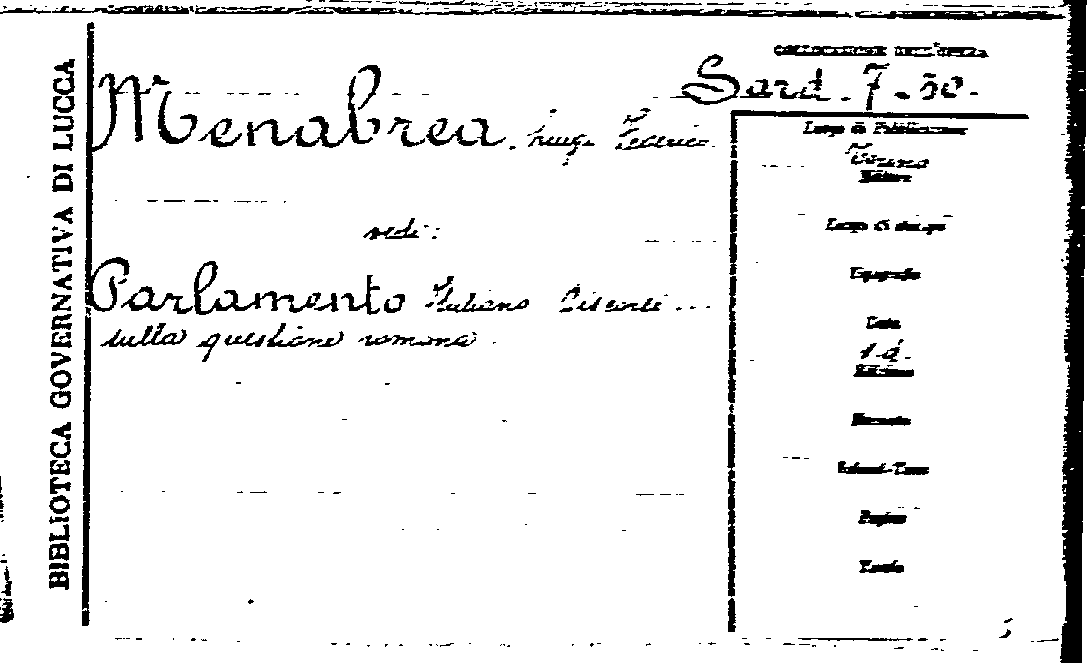 BIBLIOTECA GOVERNATIVA DI LUCCA
COLLOCAZIONE DELL'OPERA
Sard. 7-50.
Menabrea. Luigi Federico.
vedi:
Parlamento Italiano Discorsi ...
sulla questione romana.
Luogo di Pubblicazione
Torino
Editore
Luogo di stampa
Tipografia
Data
s.d.
Edizione
Formato
Volumi-Tomi
Pagine
Tavole